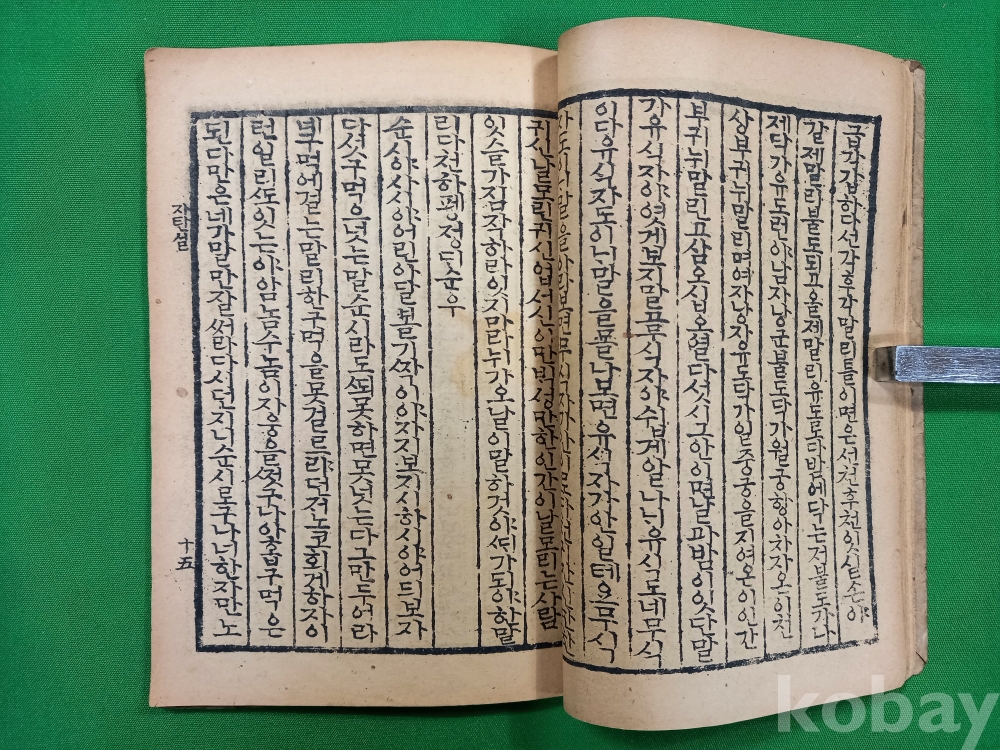 급하갑하다선가후가말리틀이면은선천후천잇실손야
갈제말리불도되고올제말리유도로다밭에닥는저불도가나
제닥가유도련야남자낭군불도닥가월궁항아차자오이천
상부귀누말리며여자낭자유도닥가일중궁을지여온이인간
부귀뉘말린고삼오시십오열다섯시그안이면날파밤이잇단말
가유식자야엿게보지말고무식자야수넙게알나니유식도네무식
이다유식자도이니말을뜰나보면유식자가안일테요무식
귀신날모린귀신업서신이만백성만하인간이날모리는사람
잇스트가짐작하라이지마라뉘가오날이말할것이야쎄가도이야할말
리다전하폐졍디순우
순시야사시야어린아달볼기짝이야자지보기시하시야어듸보자
다섯구먹은넛는말순시라도또못하면모슷넛는다그만두어라
뷔구먹에겻는말리한구먹을못걸르랴더져노코회게하자이
런일리또잇는야암놈수놈이자웅을쎳구나아홉구먹은
된다만은네가말만잘써라다시던지니순시로구나너한자만노
자탄셜
十五
kobay